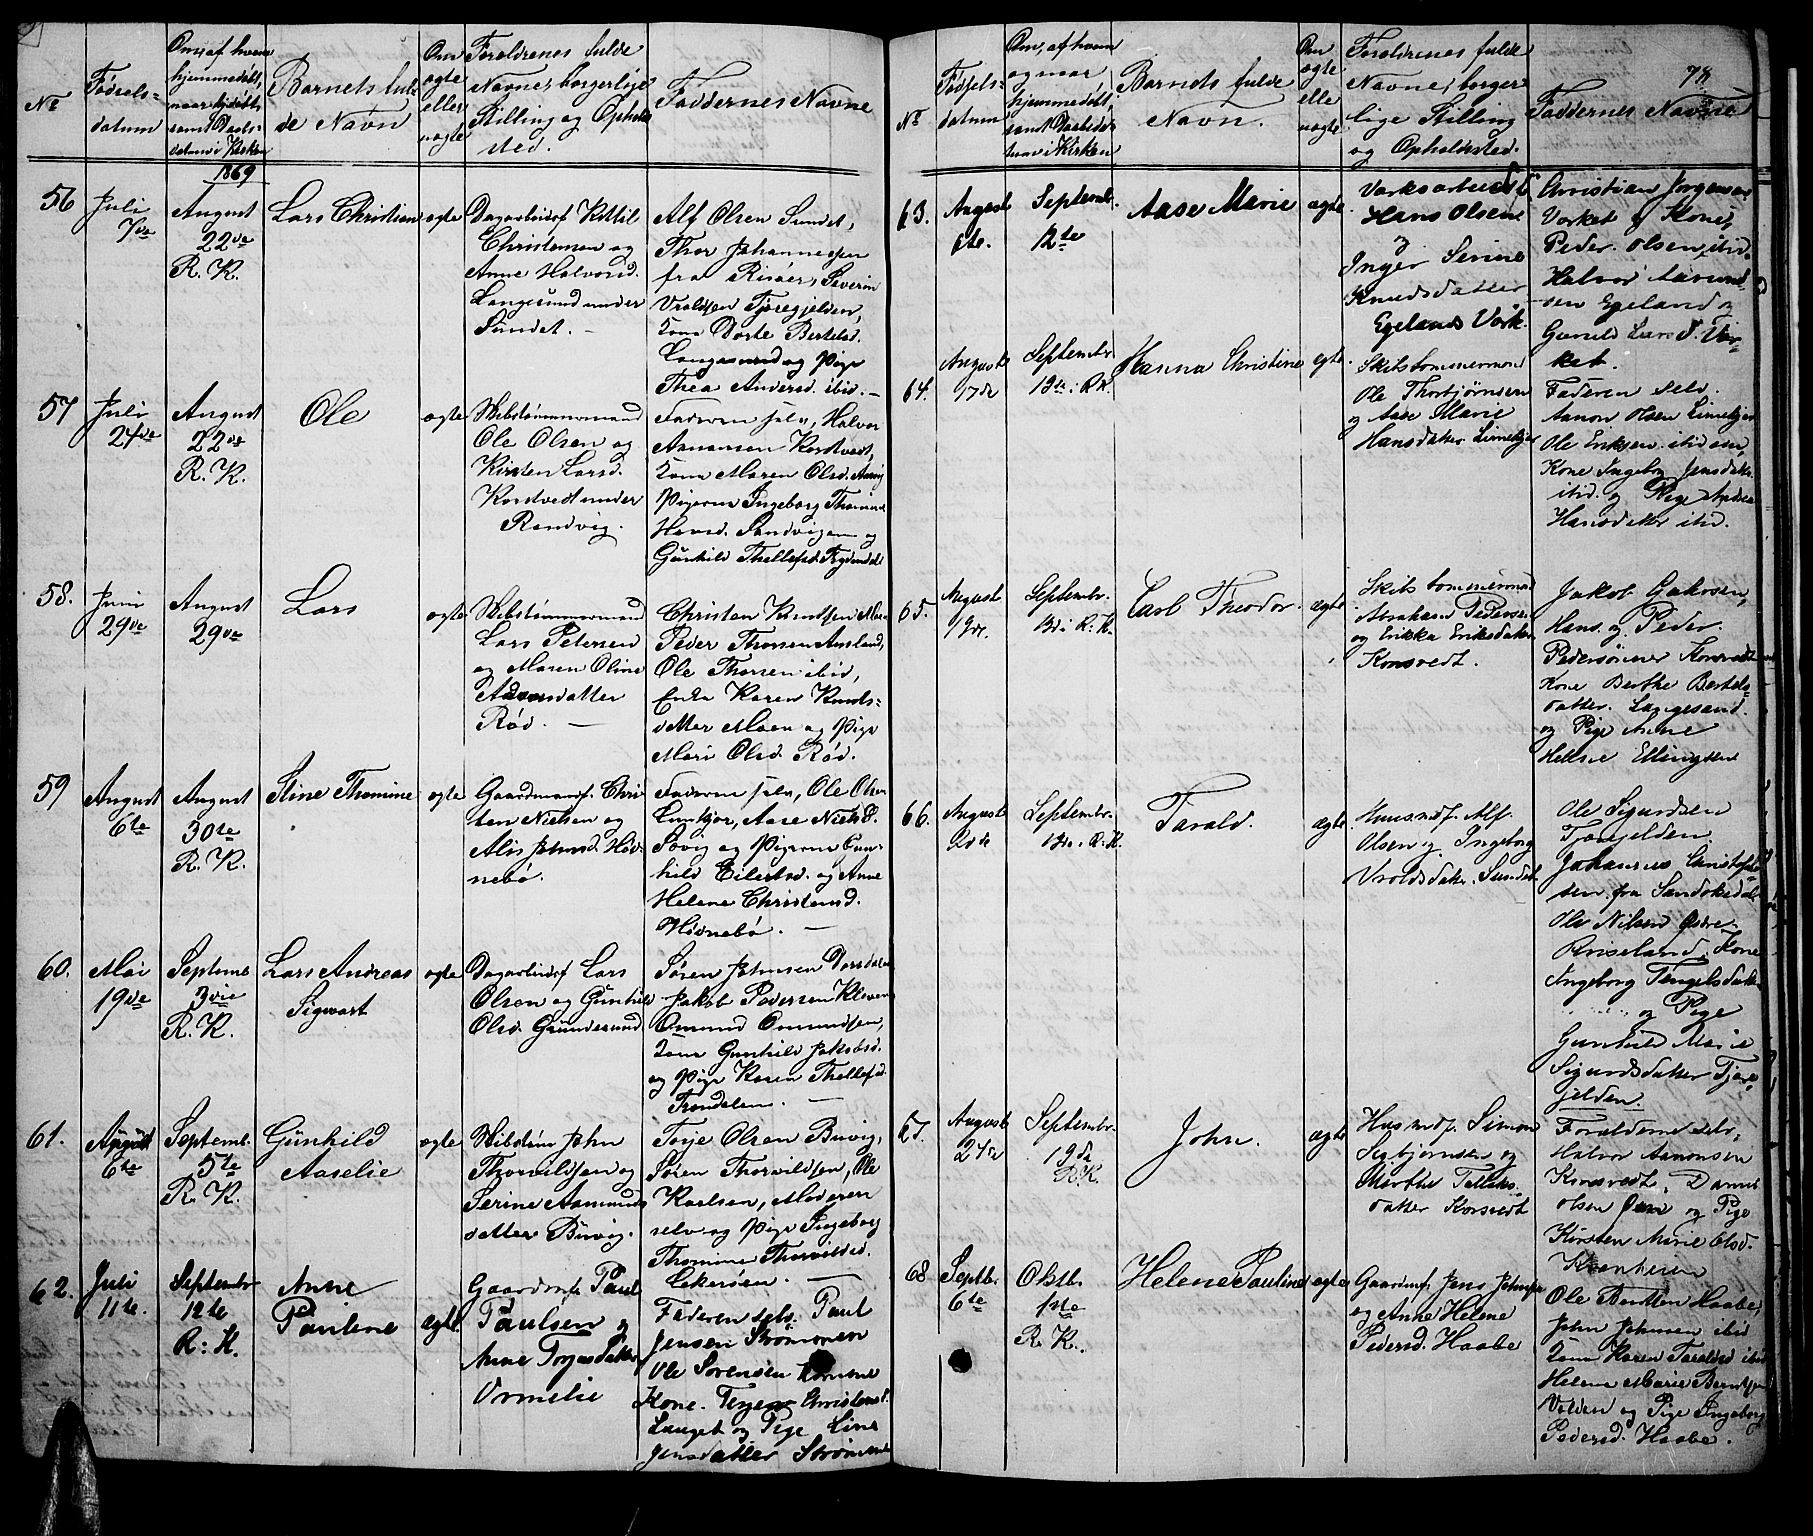 No
Fødsels-
datum
Om, af hvem
hjemmedøbt,
naar hjdøbt,
samt Daabs-
datum i Kirken
Barnets ful-
de Navn
Om
ægte
eller
uægte
Forældrenes fulde
Navne, borgerlige
Stilling og Ophold
sted.
Faddernes Navne
1869
56
Juli
7de
August
22de
R. K.
Lars Christian
ægte
Dagarbeidsf Kittil
Christensen og
Anne Halvorsd.
Langesund under
Sundet. —
Alf Olsen Sundet,
Thor Johannessen
fra Risøer, Severin
Vraldsen Tjøregjelden,
Kone Dorte Bertelsd.
Langesund og Pige
Thea Andersd. ibid. —
57
Juli
24de
August
22de
R. K.
Ole
ægte
Skibstømmermand
Ole Olsen og
Kirsten Larsd.
Korsvedt under
Randvig.
Faderen selv, Halvor
Aanonsen Korsvedt,
Kone Maren Olsd.
Pigerne Ingeborg Thomine
Hansd. Sandvigen og
Gunhild Thellefsd.
58.
Juni
29de
August
29de
Lars
ægte
Skibstømmermand
Lars Petersen
og Maren Oline
Rød. —
Christen Knutsen
Peder Thorsen Aasland,
Ole Thorsen ibid,
Enke Karen Knuds-
datter Moen og Pige
Mari Olsd. Rød.
59
August
6te
August
30te
R. K.
Stine Thomine
ægte
Gaardmandsf. Chri-
sten Nielsen og
Alis Johnsd. Høv-
nebø.
Faderen selv, Ole Olsen
Limkjær, Aase Nielsd.
Søvig og Pigerne Gun-
hild Eilertsd. og Anne
Helene Christensd.
Høvnebø. —
60.
Mai
19de
Septemb
3die
R. K.
Lars Andreas
Sigwart
ægte
Dagarbeidsf Lars
Olsen og Gunhild
Olsd. Grundesund
Søren Johnsen Dorsdalen
Jakob Pedersen Kleven
Omund Omundsen,
Kone Gunhild Jakobsd.
og Pige Karen Thellefsd.
Trondalen. —
61.
August
6te
Septemb.
5te
R. K.
Gunhild
Aaselie
ægte
Skibstøm John
Thorvildsen og
Serine Aamunds
datter Buvig.
Torje Olsen Buvig,
Søren Thorvildsen, Ole
Roelsen, Moderen
selv og Pige Ingeborg
Thomine Thorvildsd.
62.
Juli
11te.
Septembr
12te
R: K.
Anne
Pauline
ægte
Gaardmf. Paul
Paulsen og
Anne Torjesdatter
Urmelie
Faderen selv. Paul
Jensen Strømmen
Ole Sørensen
Kone. Tegen Christensd.
Lunget og Pige Line
Jensdatter Strømmen
78
No
Fødsels-
datum
Om, af hvem
og naar
hjemmedøbt,
samt Daabsda-
tum i Kirken
Barnets fulde
Navn.
Om
ægte
elle
uægte
Forældrenes fulde
Navne, borger
lige Stilling
og Opholdssted.
Faddernes Navne
63.
August
6te.
Septembr.
12te
Aase Marie
ægte
Værksarbeidsf.
Hans Olsen
og
Inger Serine
Knudsdatter
Egelands Værk.
Christian Jørgensen
Værket og Kone,
Peder Olsen, ibid.
Halvor Aanund-
sen Egeland og
Gunild Larsd. Vær-
ket.
64.
August
17de
Septembr.
12te: R.K.
Hanna Christine
ægte
Skibstømmermand
Ole Thorbjørnsen
og Aase Marie
Hansdatter Limekjær
Faderen selv.
Aanon Olsen Limekjær
Ole Eriksen ibid
Kone Ingeborg Jensdatter
ibid. og Pige Andrea
Hansdatter ibid.
65.
August
12de.
Septembr.
R. K.
Carl Theodor.
ægte
Skibstømmermand
Abraham Pedersen
og Erikka Eriksdatter
Korsvedt.
Jakob Gakosen,
Hans og Peder
Pedersønner Korsvedt
Kone Berthe Bertels-
datter. Langesund.
og Pige Anne
Helene Ellingsen
66.
August
2de
Septembr.
R. K.
Tarald.
ægte
Husmdf. Alf
Olsen og Ingeborg
Vroldsdatter. Sundet.
Ole Sigurdsen
Tjøregjelden.
Johannes Christofer
sen. fra Sandøkedal
Ole Nilsen Østre-
Risseland, Kone
Ingeborg Tengelsdatter
og Pige
Gunhild Marie
Sigurdsdatter Tjøre-
gjelden.
67.
August
27de
Septembr.
19de
R.K.
John.
ægte
Husmdf. Simon
Segbjørnsen og
Marthe Tellefs-
datter Korsvedt
Forældrene selv,
Halvor Aanonsen
Korsvedt. Daniel
Olsen og Pige
Kirsten Marie Olsd.
68
Septbr.
6te
Oktb.
1ste
R. K.
Helene Pauline
ægte
Gaardmf. Jens Johnsen
og Anne Helene
Pedersd. Haabe
Ole Berntsen Haabe,
John Johnsen ibid
Kone Karen Taraldsd ibid
Helene Marie Berntsen
Volden og Pige Ingeborg
Pedersd. Haabe.